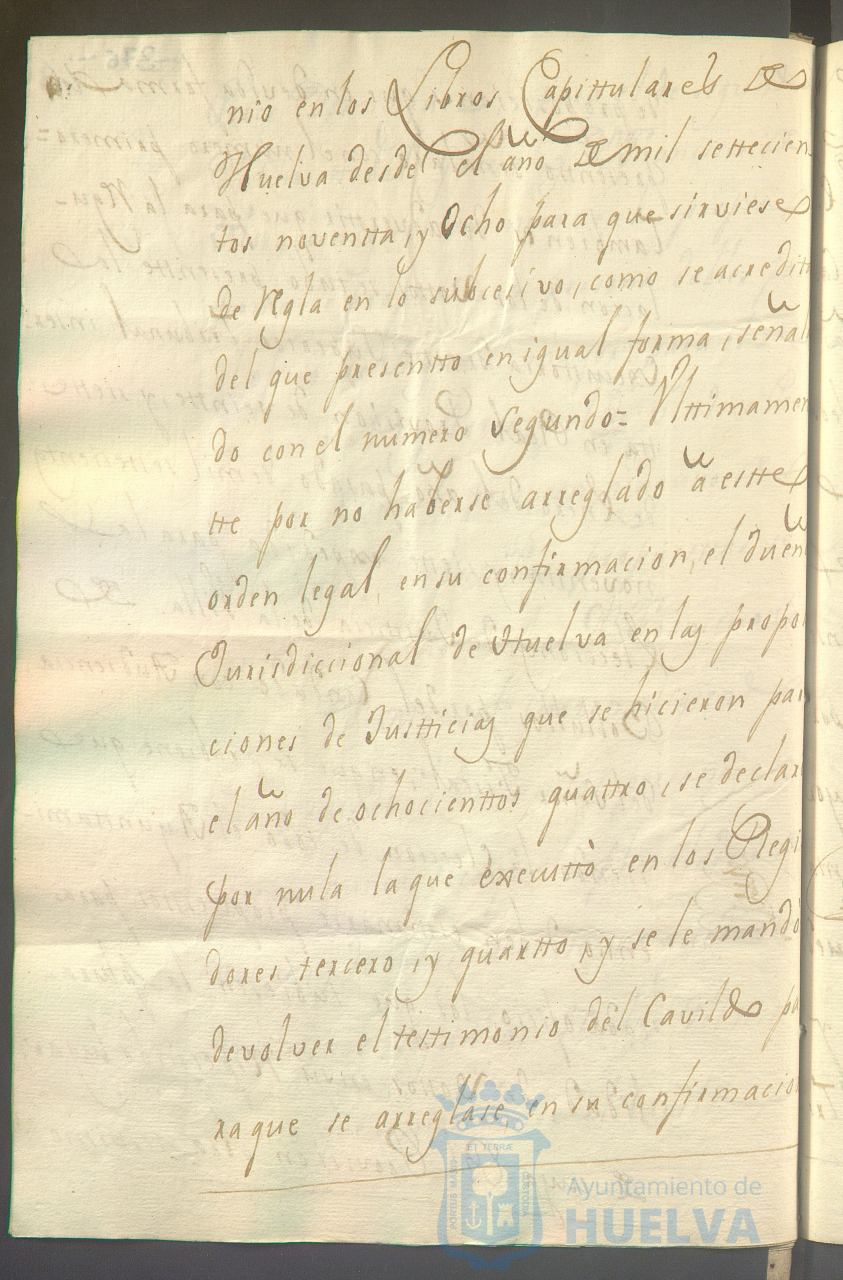 nio en los Libros Capittulares de
Huelva desde el año de mil settecien
tos noventta, y Ocho para que sirviese
de Regla en lo subcesivo, como se acredit
del que presentto en igual forma, señal
do con el numero Segundo= Ulttimamen
tte por no haberse arreglado â estte
orden legal, en su confirmacion, el dueñ
Jurisdiccional de Huelva en las propo
ciones de Justticias que se hicieron par
el año de ochocienttos quattro, se declar
por nula la que executtò en los Regi
dores tercero, y quartto, y se le mandò
devolver el testtimonio del Cavildo pa
ra que se arreglase en su confirmacion
ET TERRÆ
PORTUS MARIS
CUSTODIA
Ayuntamiento de
HUELVA